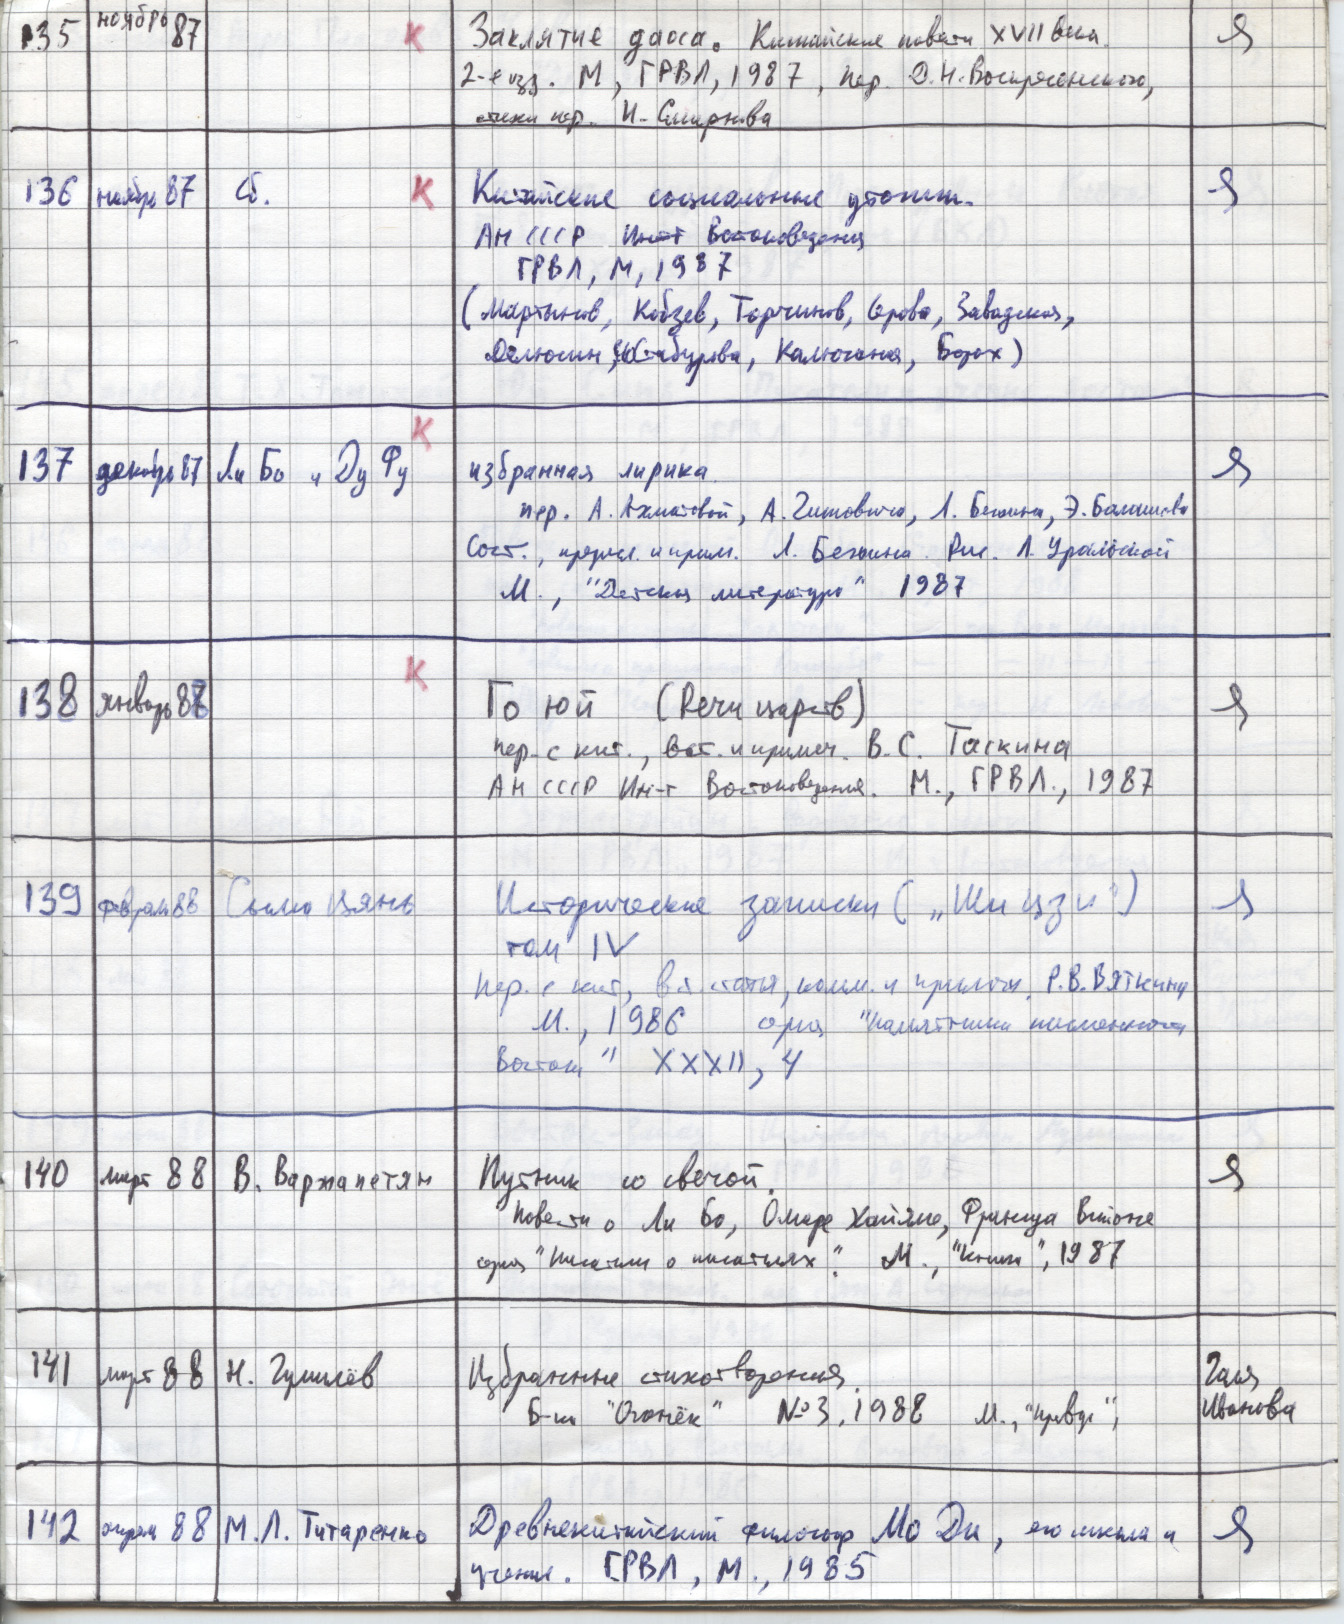 135 ноябрь 87 К Заклятие даоса. Китайские повести XVII века. Я
2-е изд. М, ГРВЛ, 1987, пер. Д.Н. Воскресенского,
стихи пер. И. Смирнова
136 ноябрь 87 Сб. К Китайские социальные утопии. Я
АН СССР Ин-т Востоковедения
ГРВЛ, М, 1987
(Мартынов, Кобзев, Торчинов, Серова, Завадская,
Делюсин, Стабурова, Калюжная, Борох)
К
137 декабрь 87 Ли Бо и Ду Фу избранная лирика. Я
пер. А. Ахматовой, А. Гитовича, Л. Бежина, Э. Балашова
Сост., предисл. и прим. Л. Бежина. Рис. Л. Уральской
М., "Детская литература" 1987
К
138 январь 88 Го юй (Речи царств) Я
пер. с кит., вст. и примеч. В.С. Таскина
АН СССР Ин-т Востоковедения. М., ГРВЛ., 1987
139 февраль 88 Сыма Цянь Исторические записки („Ши цзи") Я
том IV
пер. с кит, вст. статья, комм. и прилож. Р.В. Вяткина
М., 1986 сериа "Памятники письменности
Востока" XXXII, 4
140 март 88 В. Варжапетян Путник со свечой. Я
Повести о Ли Бо, Омаре Хайяме, Франсуа Вийоне
сериа "Писатели о писателях". М., "Книга", 1987
141 март 88 Н. Гумилёв Избранные стихотворения. Галя
Б-ка "Огонёк" №3, 1988 М., "Правда", Иванова
142 апрель 88 М.Л. Титаренко Древнекитайский философ Мо Ди, его школа и Я
учение. ГРВЛ, М., 1985